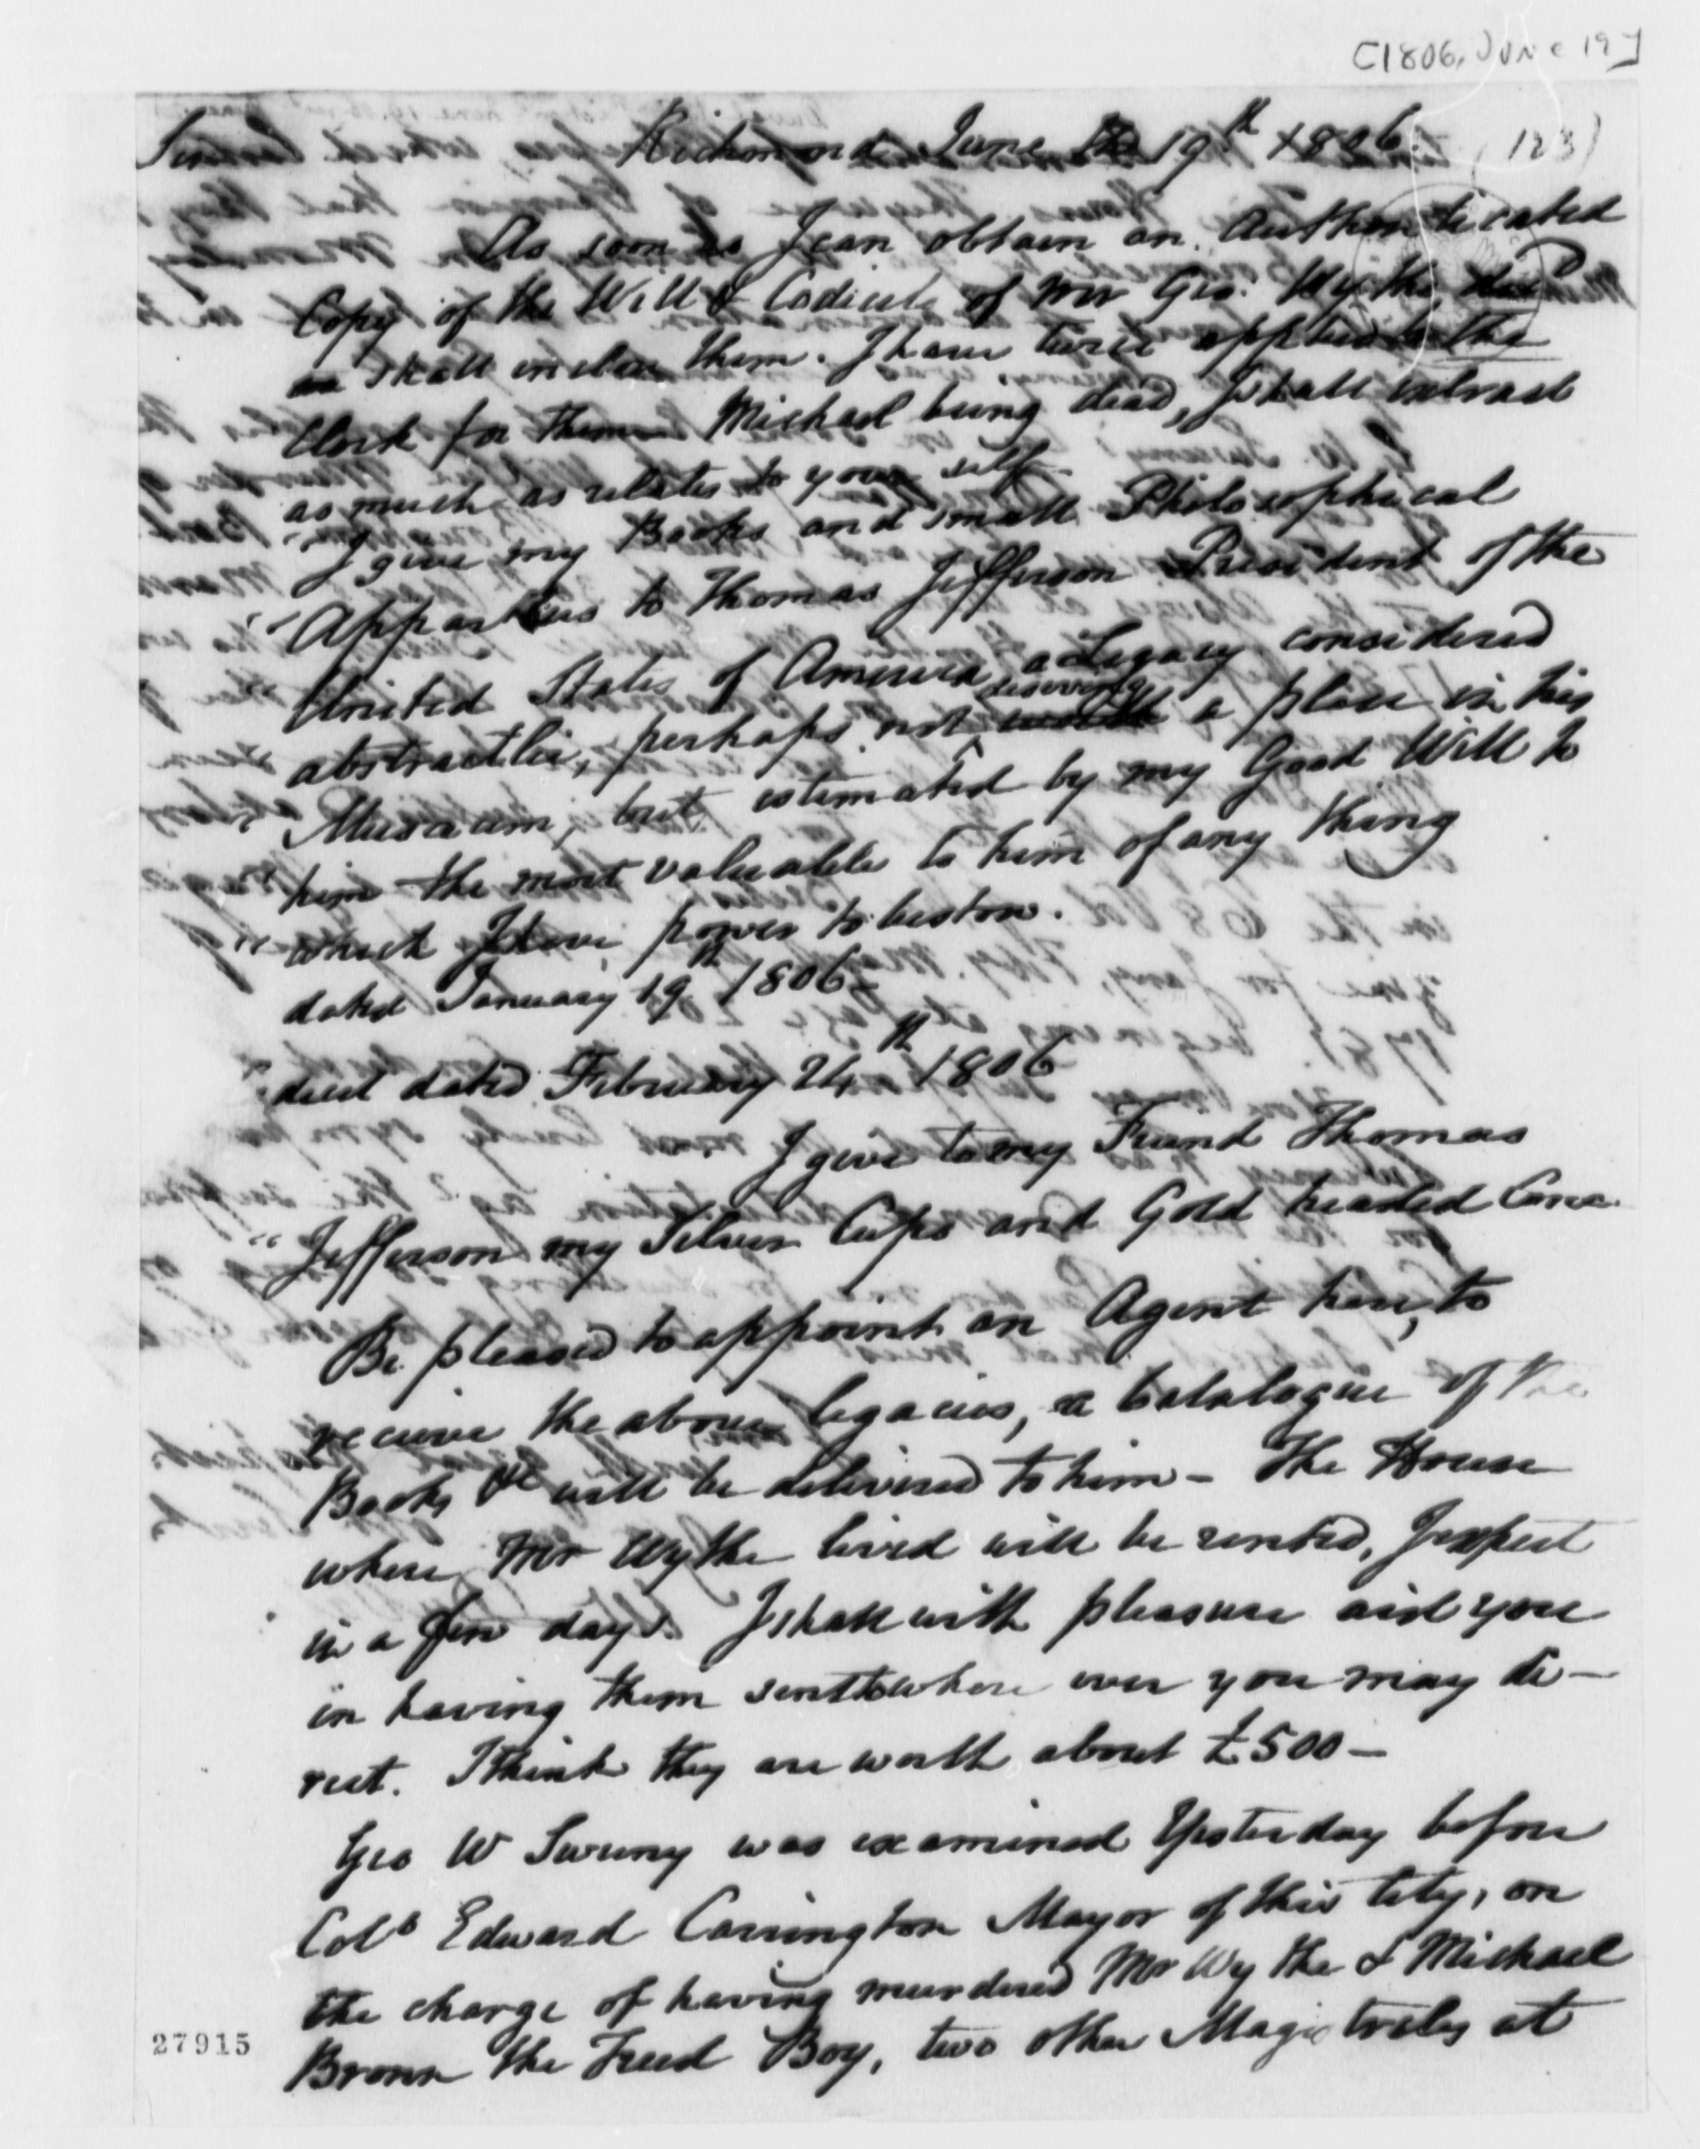 [1806, June 19]
Sir Richmond June 19th 1806. (123)
As soon as I can obtain an Authenticated
Copy of the Will & Codicils of Mr Geo. Wythe
shall inclose them. I have twice applied to the
Clerk for them Michael being dead, I shall extract
as much as relates to your self
" I give my Books and small Philosophical
" Apparatus to Thomas Jefferson President of the
" United States of America, a Legacy considered
abstractlie, perhaps not deserving a place in his
" Musaeum, but estimated by my Good Will to
" him the most valuable to him of any thing
" which I have power to bestow.
dated January 19th 1806–
dicil dated February 24th 1806
I give to my Friend Thomas
" Jefferson my Silver Cups and Gold headed Cane
Be pleased to appoint an Agent here, to
receive the above legacies, a Catalogue of the
Books &c will be delivered to him – The House
where Mr Wythe lived will be rented, I expect
in a few days. I shall with pleasure aid you
in having them sent to where ever you may di–
rect. I think they are worth about £500–
Geo W Sweny was examined Yesterday before
Colo Edward Carrington Mayor of this City, on
the charge of having murdered Mr Wythe & Michael
Brown the Freed Boy, two other Magistrates at
27915